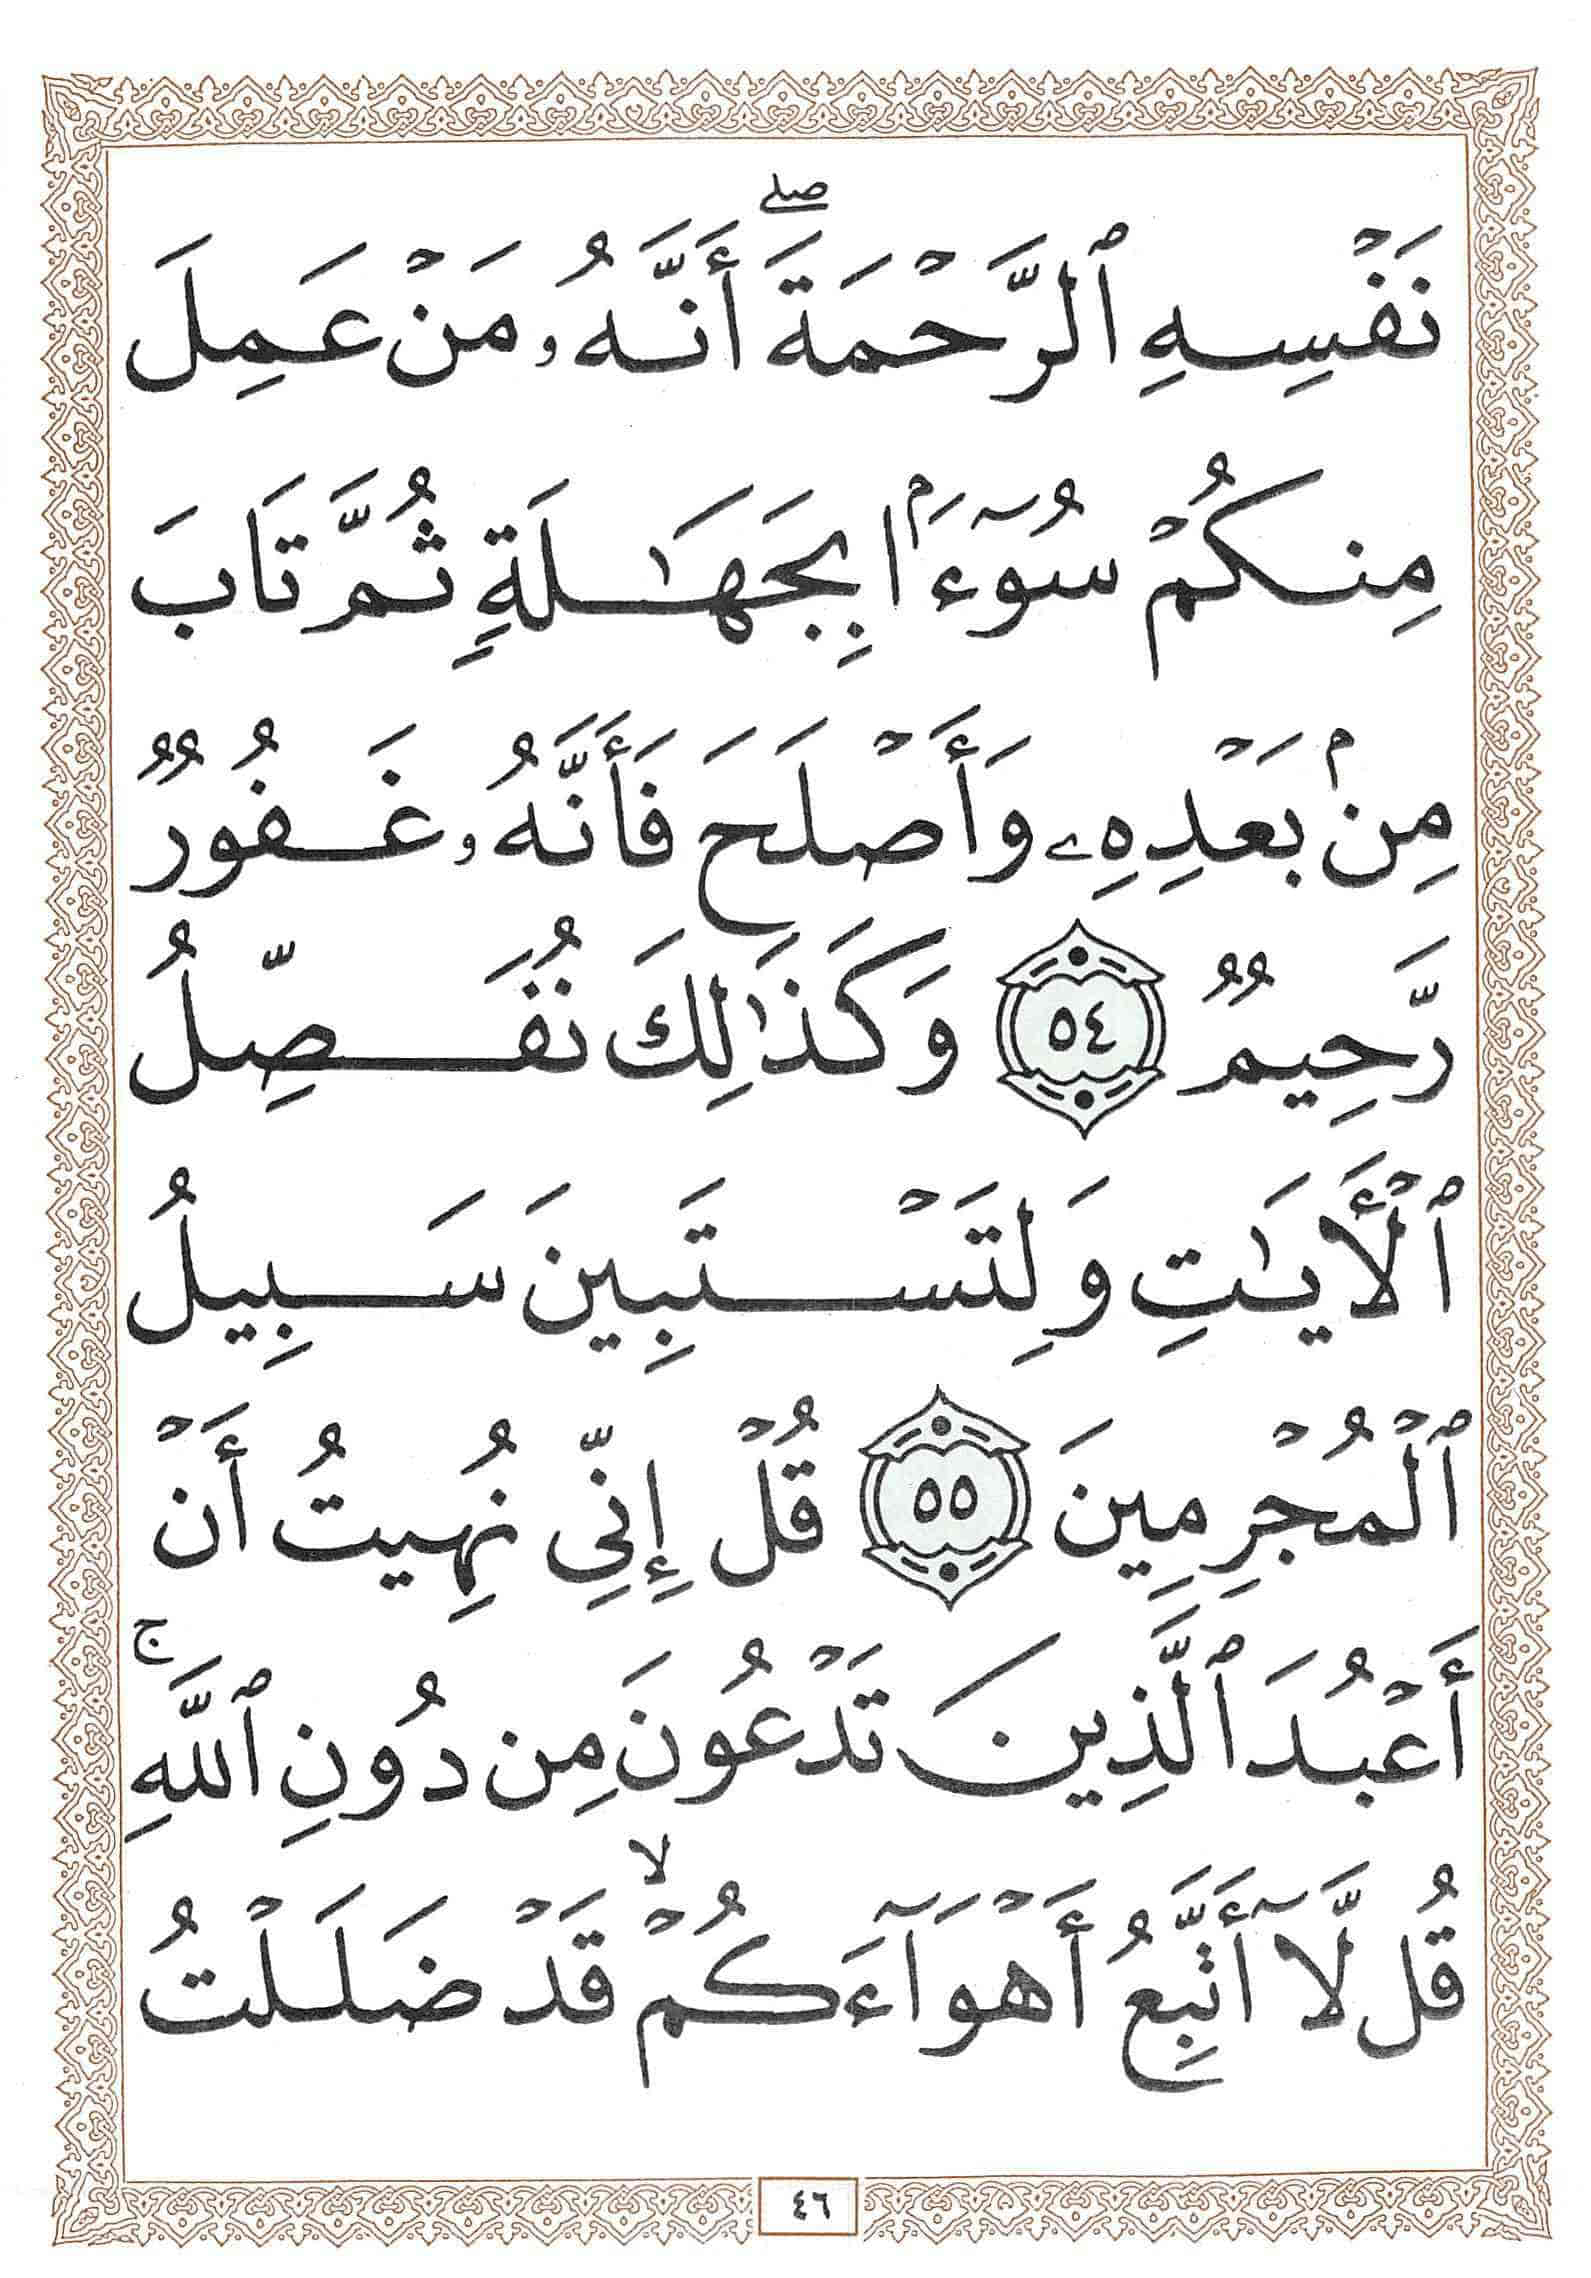 نَفْسِهِ ٱلرَّحْمَةَ ۖ أَنَّهُۥ مَنْ عَمِلَ
مِنكُمْ سُوٓءَۢا بِجَهَـٰلَةٍ ثُمَّ تَابَ
مِنۢ بَعْدِهِۦ وَأَصْلَحَ فَأَنَّهُۥ غَفُورٌ
رَّحِيمٌ ٥٤ وَكَذَٰلِكَ نُفَصِّلُ
ٱلْأَيَـٰتِ وَلِتَسْتَبِينَ سَبِيلُ
ٱلْمُجْرِمِينَ ٥٥ قُلْ إِنِّى نُهِيتُ أَنْ
أَعْبُدَ ٱلَّذِينَ تَدْعُونَ مِن دُونِ ٱللَّهِ ۚ
قُل لَّآ أَتَّبِعُ أَهْوَآءَكُمْ ۙ قَدْ ضَلَلْتُ
٤٦